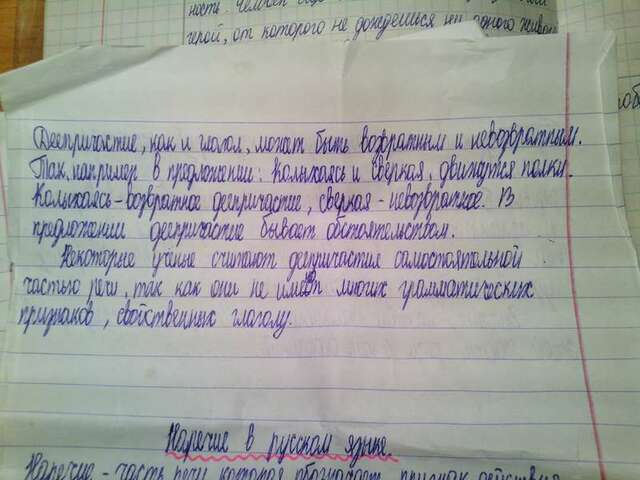 ность. Человек
герой, от которого не дождёшься ни одного живо
Деепричастие, как и глагол, может быть возвратным и невозвратным.
Так, например в предложении: Колыхаясь и сверкая, движутся полки.
Колыхаясь - возвратное деепричастие, сверкая - невозвратное. В
предложении деепричастие бывает обстоятельством.
Некоторые учёные считают деепричастия самостоятельной
частью речи, так как они не имеют многих грамматических
признаков, свойственных глаголу.
Наречие в русском языке.
Наречие - часть речи которая обозначает признак действия